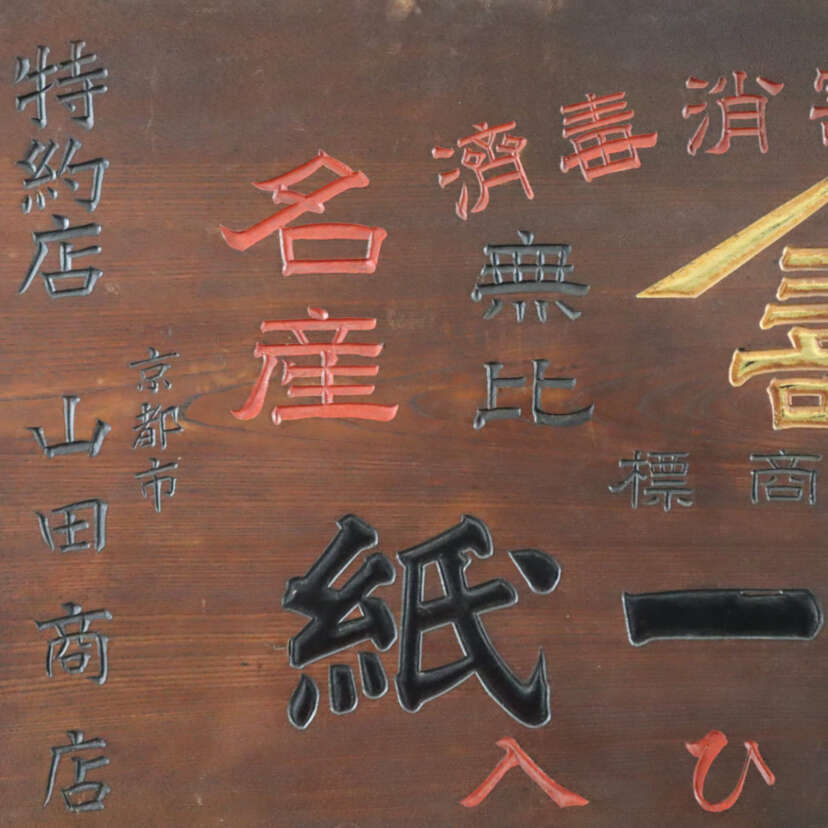 消毒濟
商標
一紙
ひ入
無比
名産
特約店
京都市
山田商店